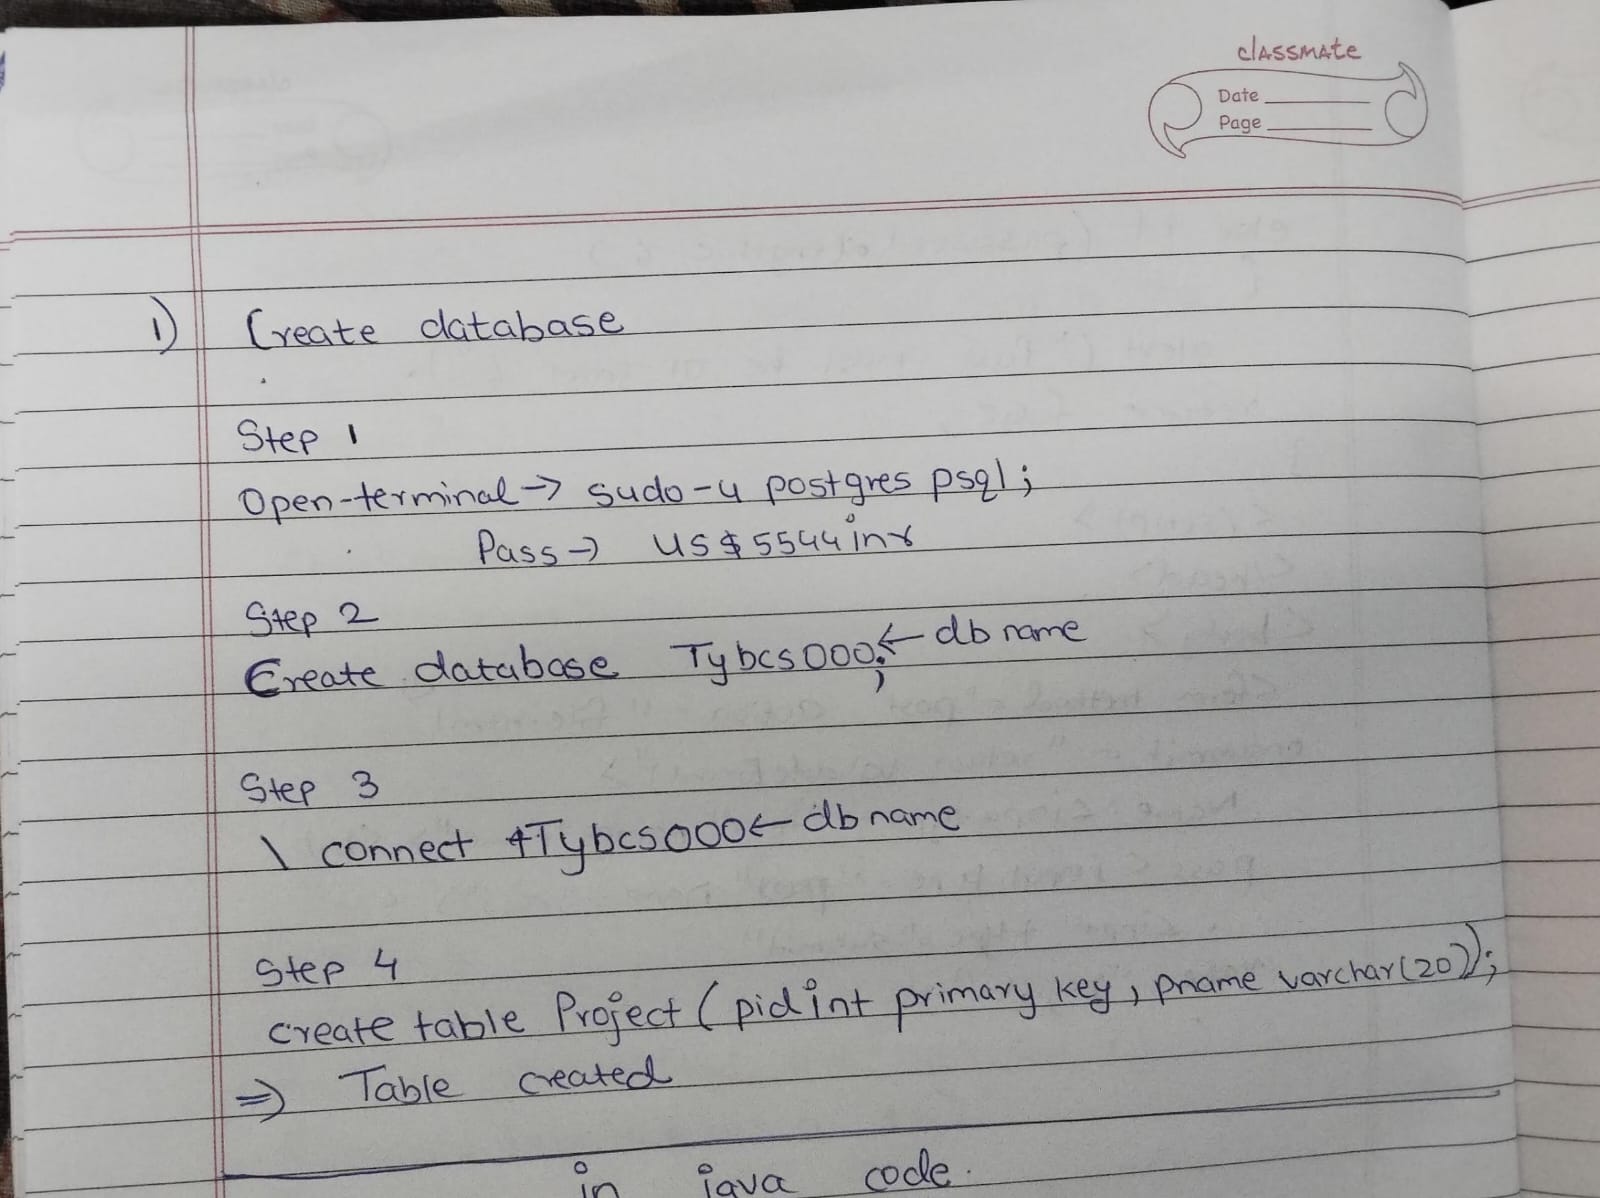 classmate
Date
Page
1) Create database
Step 1
Open-terminal → sudo -u postgres psql;
Pass → US$5544inr
Step 2
Create database Tybcs000; ← db name
Step 3
\ connect Tybcs000 ← db name
Step 4
create table Project ( pid int primary key, pname varchar(20));
⇒ Table created
in java code.